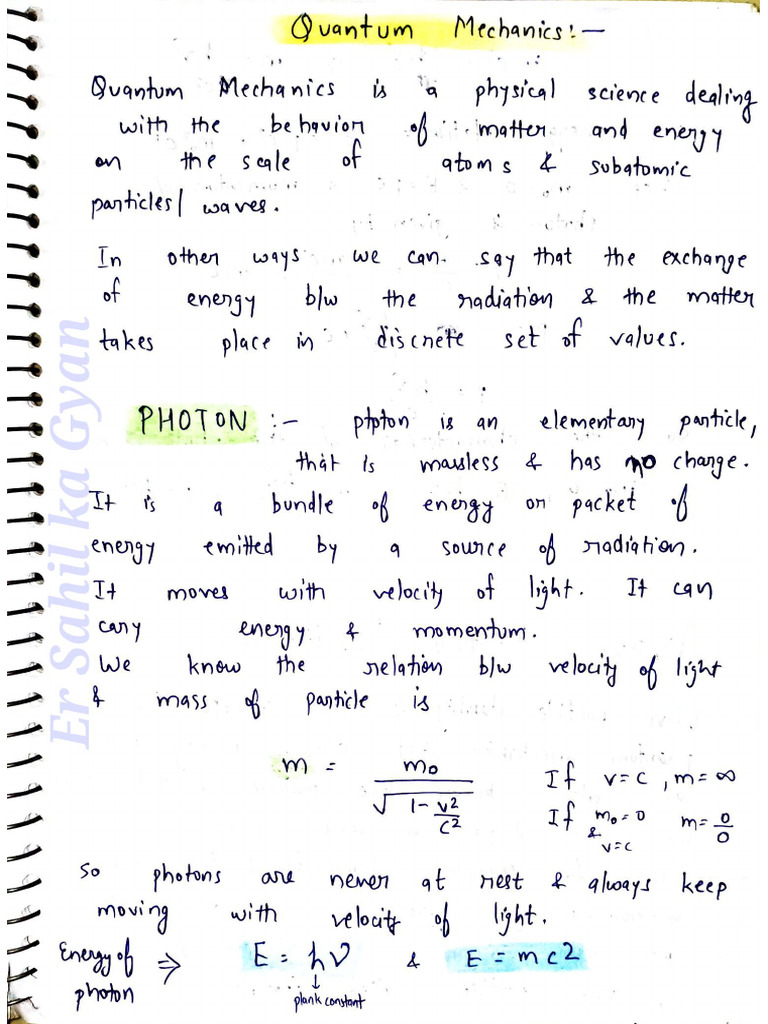 Quantum Mechanics:-
Quantum Mechanics is a physical science dealing
with the behavior of matter and energy
on the scale of atoms & subatomic
particles/ waves.
In other ways we can say that the exchange
of energy b/w the radiation & the matter
takes place in discrete set of values.
PHOTON :- photon is an elementary particle,
that is massless & has no charge.
It is a bundle of energy or packet of
energy emitted by a source of radiation.
It moves with velocity of light. It can
cary energy & momentum.
We know the relation b/w velocity of light
& mass of particle is
m = m₀ / √(1 - v²/c²) If v=c, m=∞
If m₀=0 & v=c m=0/0
So photons are never at rest & always keep
moving with velocity of light.
Energy of photon ⇒ E = hν & E = mc2
↓
plank constant
Er Sahil ka Gyan